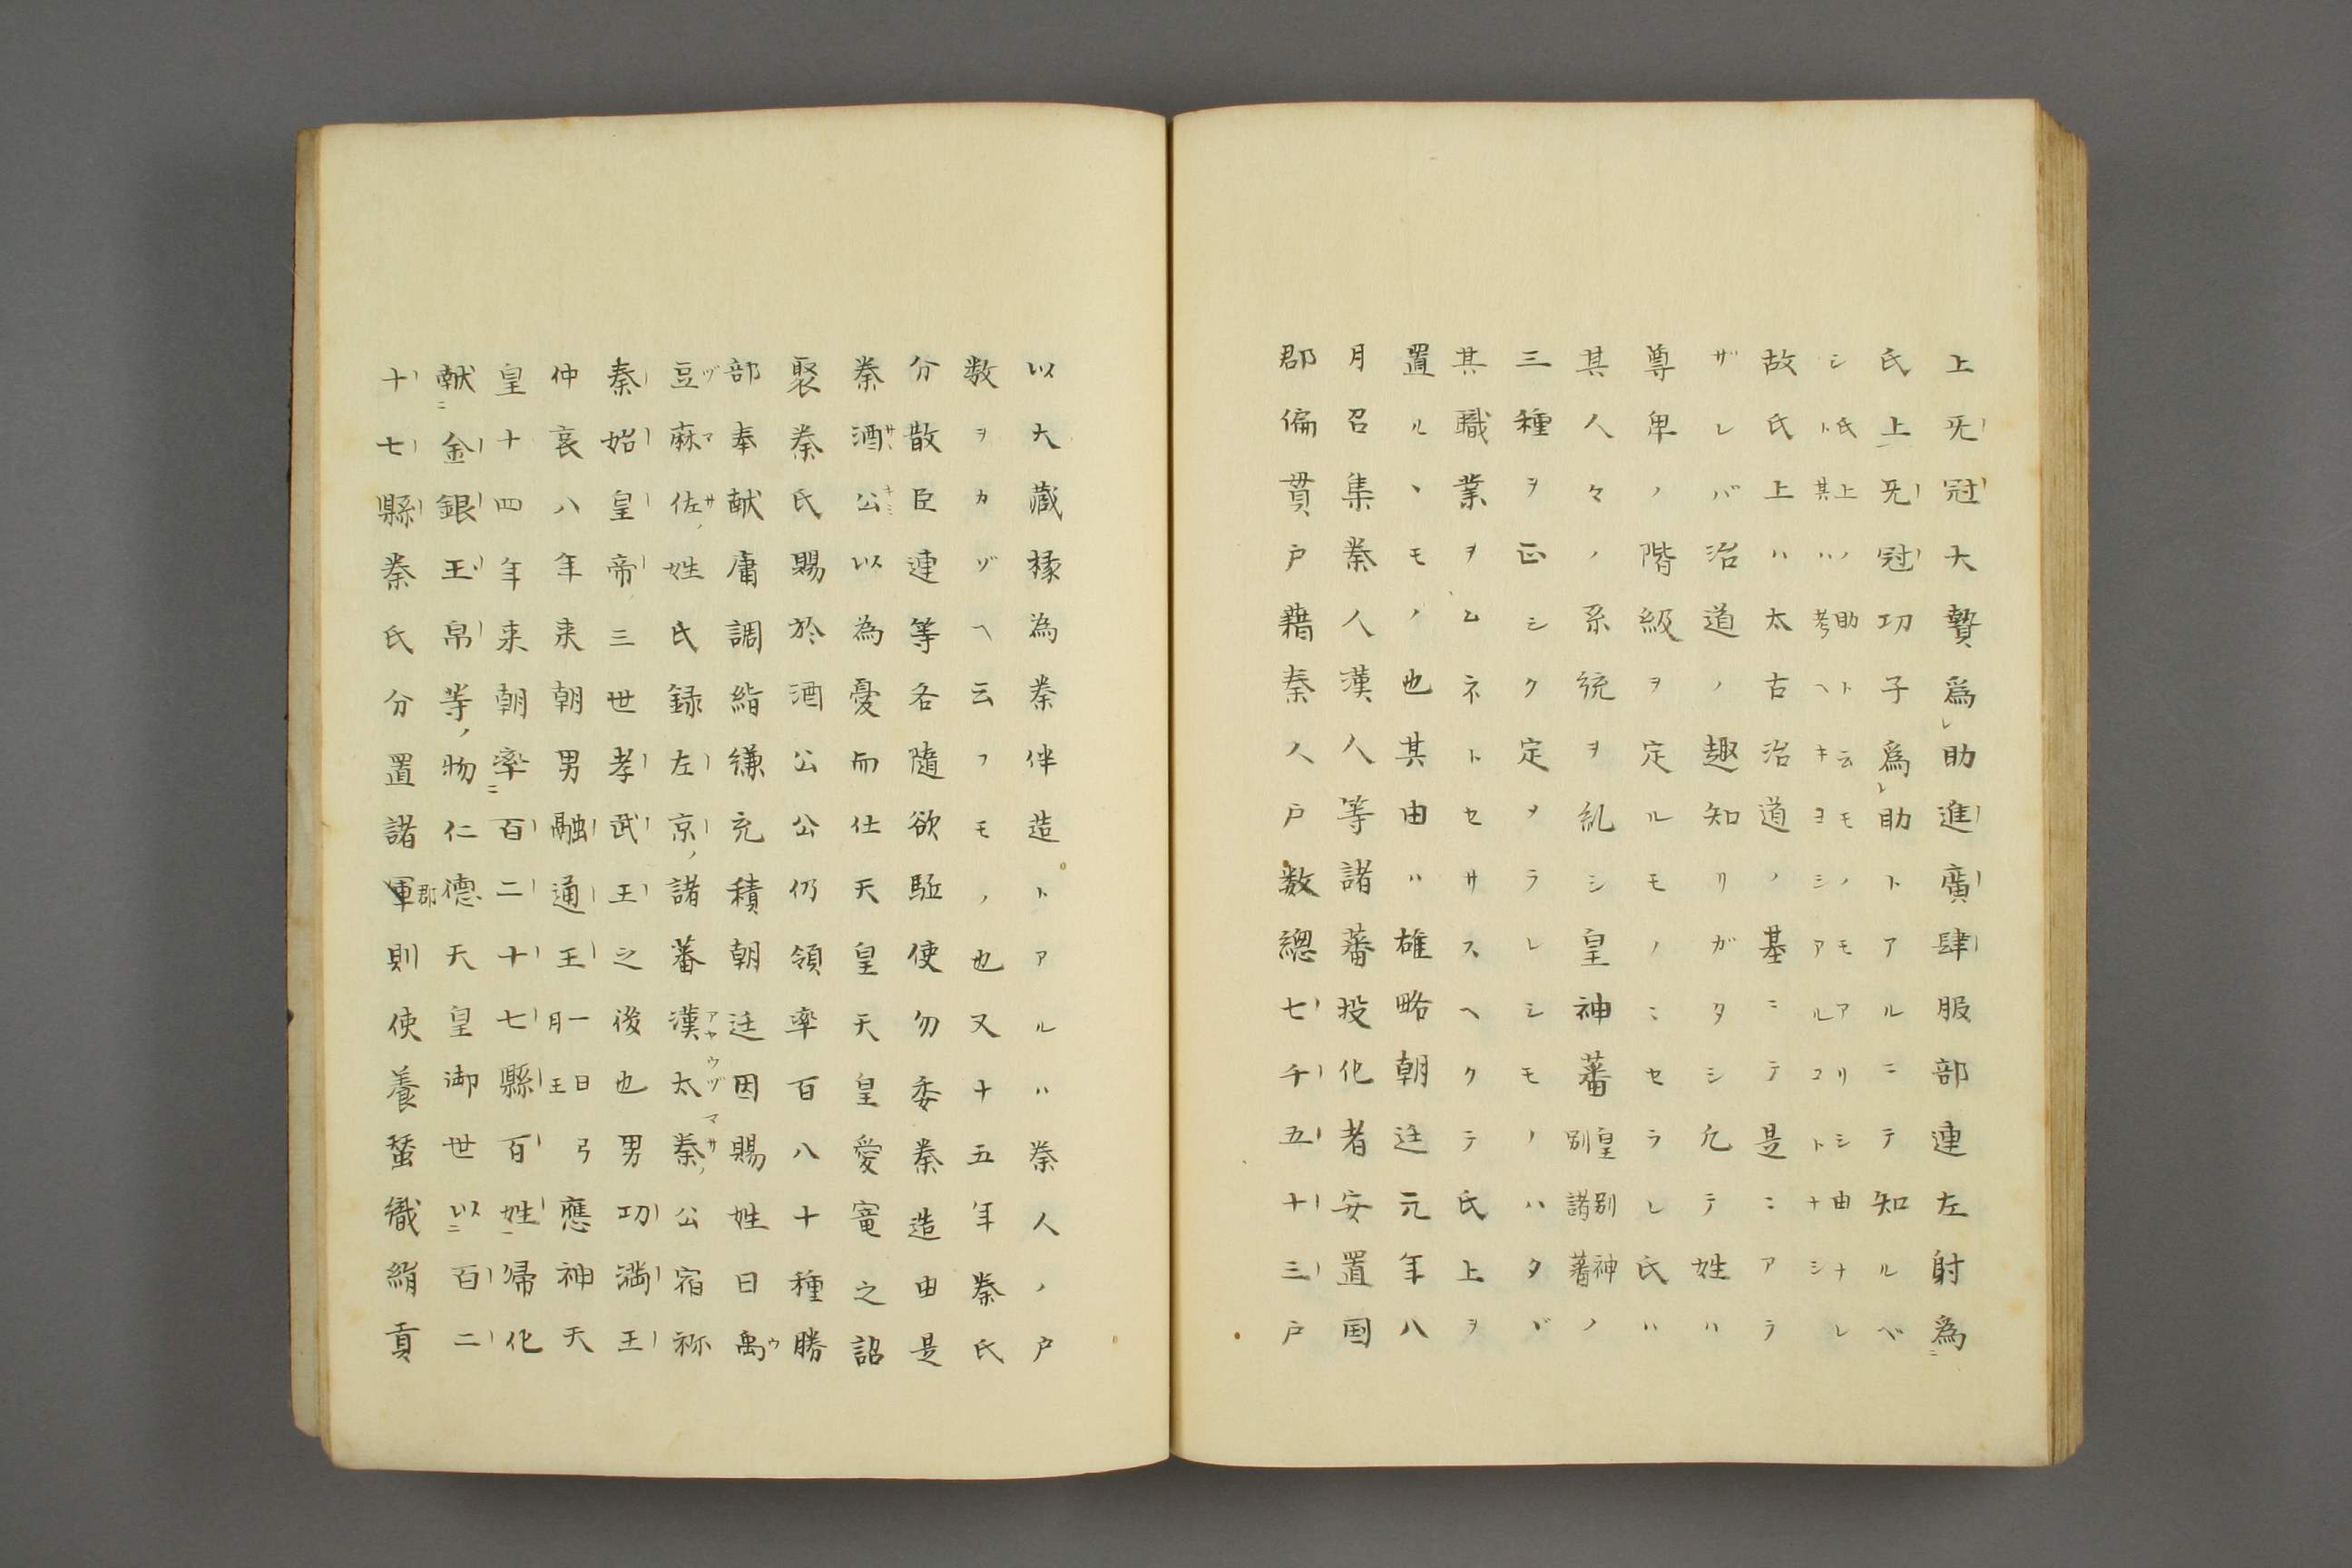 上旡冠大贄爲助進廣肆服部連左射爲
氏上旡冠功子爲助トアルニテ知ルベ
シ氏上ノ助ト云モノモアリシ由ナレ
ト其ハ考ヘキヨシアルコトナシ
故氏上ハ太古治道ノ基ニテ是ニアラ
ザレバ治道ノ趣知リガタシ凢テ姓ハ
尊卑ノ階級ヲ定ルモノニセラレ氏ハ
其人々ノ系統ヲ糺シ皇神蕃皇別神別諸蕃ノ
三種ヲ正シク定メラレシモノハタヾ
其職業ヲムネトセサスヘクテ氏上ヲ
置ルヽモノ也其由ハ雄略朝廷元年八
月召集秦人漢人等諸蕃投化者安置国
郡偏貫戸藉秦人戸数總七千五十三戸
以大蔵椽為秦伴造トアルハ秦人ノ戸
数ヲカヅヘ云フモノ也又十五年秦氏
分散臣連等各隨欲駈使勿委秦造由是
秦酒公以為憂而仕天皇天皇愛寵之詔
聚秦氏賜於酒公公仍領率百八十種勝
部奉献庸調絹縑充積朝廷因賜姓曰禹
豆麻佐姓氏録左京諸蕃漢太秦公宿祢
秦始皇帝三世孝武王之後也男功満王
仲哀八年来朝男融通王一曰弓月王應神天
皇十四年来朝率百二十七縣百姓歸化
献金銀玉帛等物仁德天皇御世以百二
十七縣秦氏分置諸軍郡則使養蚕織絹貢